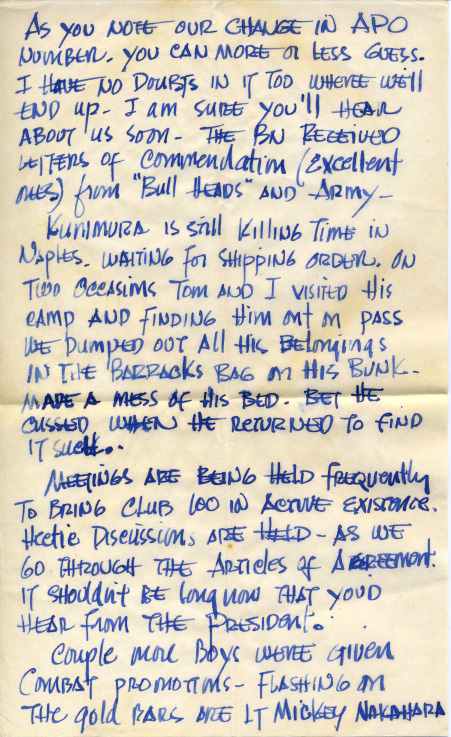 As you note our change in APO
number. you can more or less guess.
I have no doubts in it too where we'll
end up - I am sure you'll hear
about us soon - The Bn received
letters of commendation (excellent
ones) from "Bull Heads" and Army -
Kunimura is still killing time in
Naples. waiting for shipping order. On
two occasions Tom and I visited his
camp and finding him out on pass
we dumped out all his belongings
in the barracks bag on his bunk -
made a mess of his bed. Bet he
cussed when he returned to find
it such..
Meetings are being held frequently
to bring Club 100 in active existence.
Hectic discussions are held - as we
go through the Articles of Agreement.
it shouldn't be long now that you'd
hear from the President.
Couple more boys were given
combat promotions - flashing on
the gold bars are Lt Mickey Nakahara